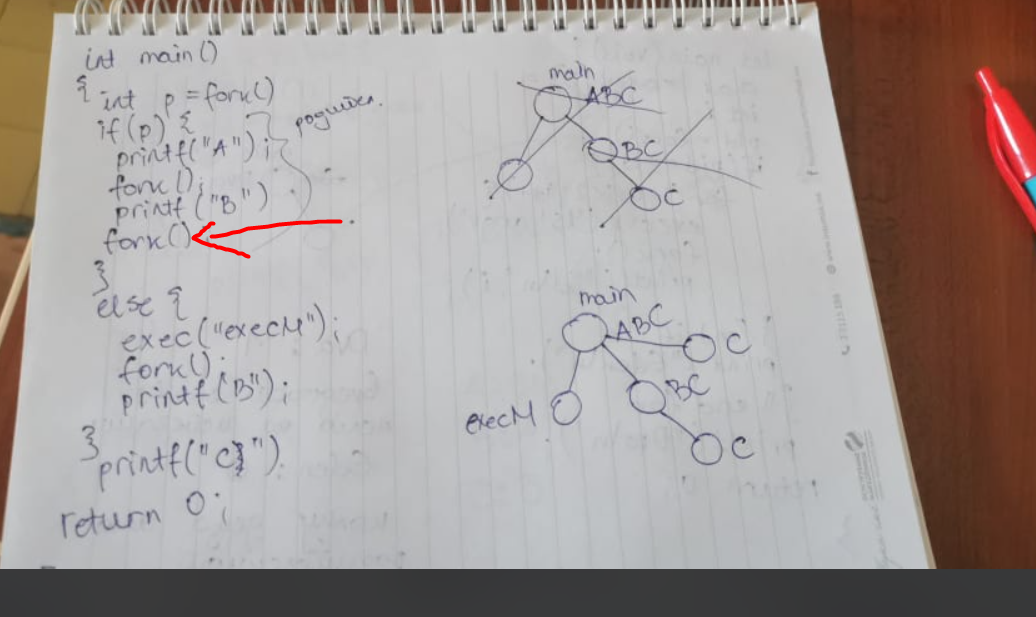 int main()
{ int p = fork()
if(p) {
printf("A");
fork();
printf("B")
fork()
}
else {
exec("execM");
fork();
printf(B");
}
printf("C}").
return 0;
родител.
main
ABC
BC
C
main
ABC
C
BC
execM
C